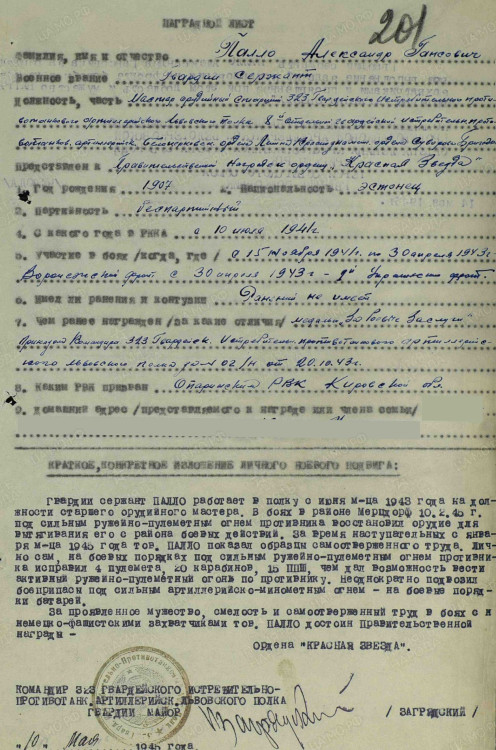 201
НАГРАДНОЙ ЛИСТ
Фамилия, имя и отчество Палло Александр Гансович
Военное звание Гвардии Сержант
Должность, часть Мастер орудийный старший 323 Гвардейского Истребительно проти-
вотанкового Артиллерийского Львовского Полка 8ой отдельной гвардейской истребительно проти-
вотанков. артиллерийск. ордена Ленина Краснознам. ордена Суворова Бригады
Представлен к Правительственной награде ордену „Красная Звезда"
1. Год рождения 1907 2. Национальность эстонец
3. Партийность беспартийный
4. С какого года в РККА с 10 июля 1941г.
5. Участие в боях /когда, где/ с 15 ноября 1941г. по 30 апреля 1943г.
Воронежский фронт с 30 апреля 1943г - 1й Украинский фронт.
6. Имел ли ранения и контузии Ранений не имеет
7. Чем ранее награжден /за какие отличия/ медаль „За Боевые Заслуги"
Приказом Командира 323 Гвардейск. Истребительно противотанкового артиллерий-
ского Львовского полка 02/н от 20.10.43г.
8. Каким РВК призван Опаринский РВК Кировской обл.
9. Домашний адрес /представляемого к награде или члена семьи/
КРАТКОЕ, КОНКРЕТНОЕ ИЗЛОЖЕНИЕ ЛИЧНОГО БОЕВОГО ПОДВИГА:
Гвардии сержант ПАЛЛО работает в полку с июня м-ца 1943 года на дол-
жности старшего орудийного мастера. В боях в районе Мерцдорф 10.2.45 г.
под сильным ружейно-пулеметным огнем противника восстановил орудие для
вытягивания его с района боевых действий. За время наступательных с янва-
ря м-ца 1945 года тов. ПАЛЛО показал образцы самоотверженного труда. Лич-
но сам, на боевых порядках под сильным ружейно-пулеметным огнем противни-
ка исправил 4 пулемета, 20 карабинов, 15 ППШ, чем дал возможность вести
активный ружейно-пулеметный огонь по противнику. Неоднократно подвозил
боеприпасы под сильным артиллерийско-минометным огнем - на боевые поряд-
ки батарей.
За проявленное мужество, смелость и самоотверженный труд в боях с н
немецко-фашистскими захватчиками тов. ПАЛЛО достоин Правительственной
награды -
Ордена "КРАСНАЯ ЗВЕЗДА".
КОМАНДИР 323 ГВАРДЕЙСКОГО ИСТРЕБИТЕЛЬНО-
ПРОТИВОТАНК. АРТИЛЛЕРИЙСК. ЛЬВОВСКОГО ПОЛКА
ГВАРДИИ МАЙОР / ЗАГРЯДСКИЙ /
"10" Мая 1945 года